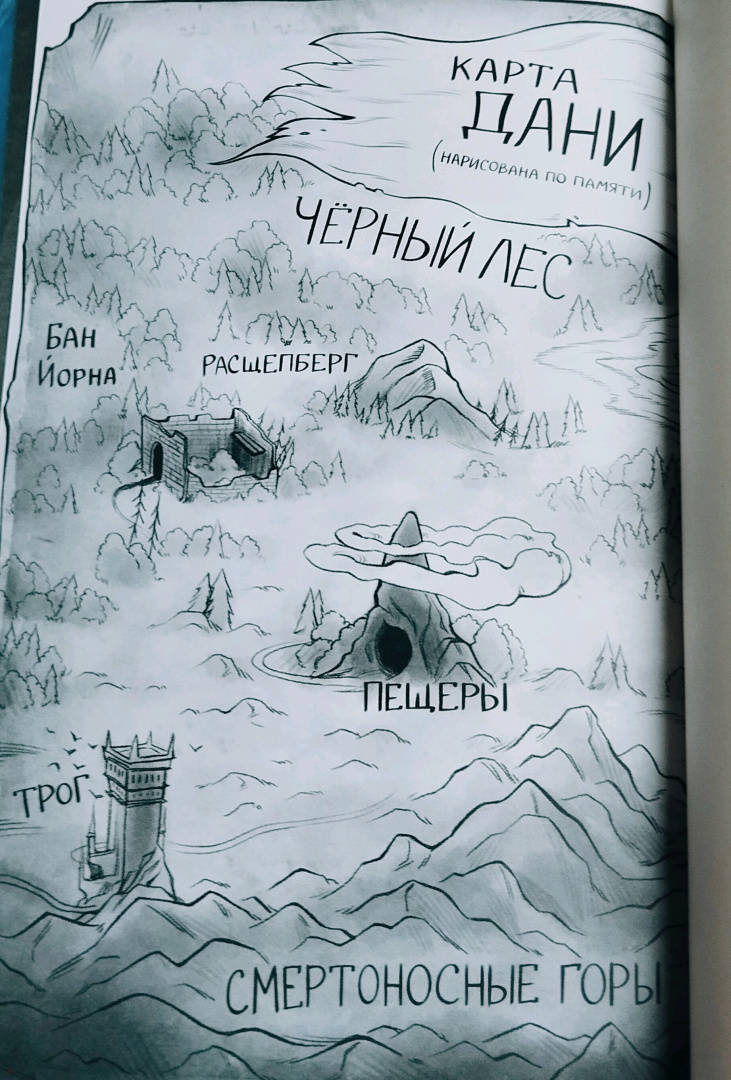 КАРТА
ДАНИ
(НАРИСОВАНА ПО ПАМЯТИ)
ЧЁРНЫЙ ЛЕС
БАН
ЙОРНА
РАСЩЕПБЕРГ
ПЕЩЕРЫ
ТРОГ
СМЕРТОНОСНЫЕ ГОРЫ